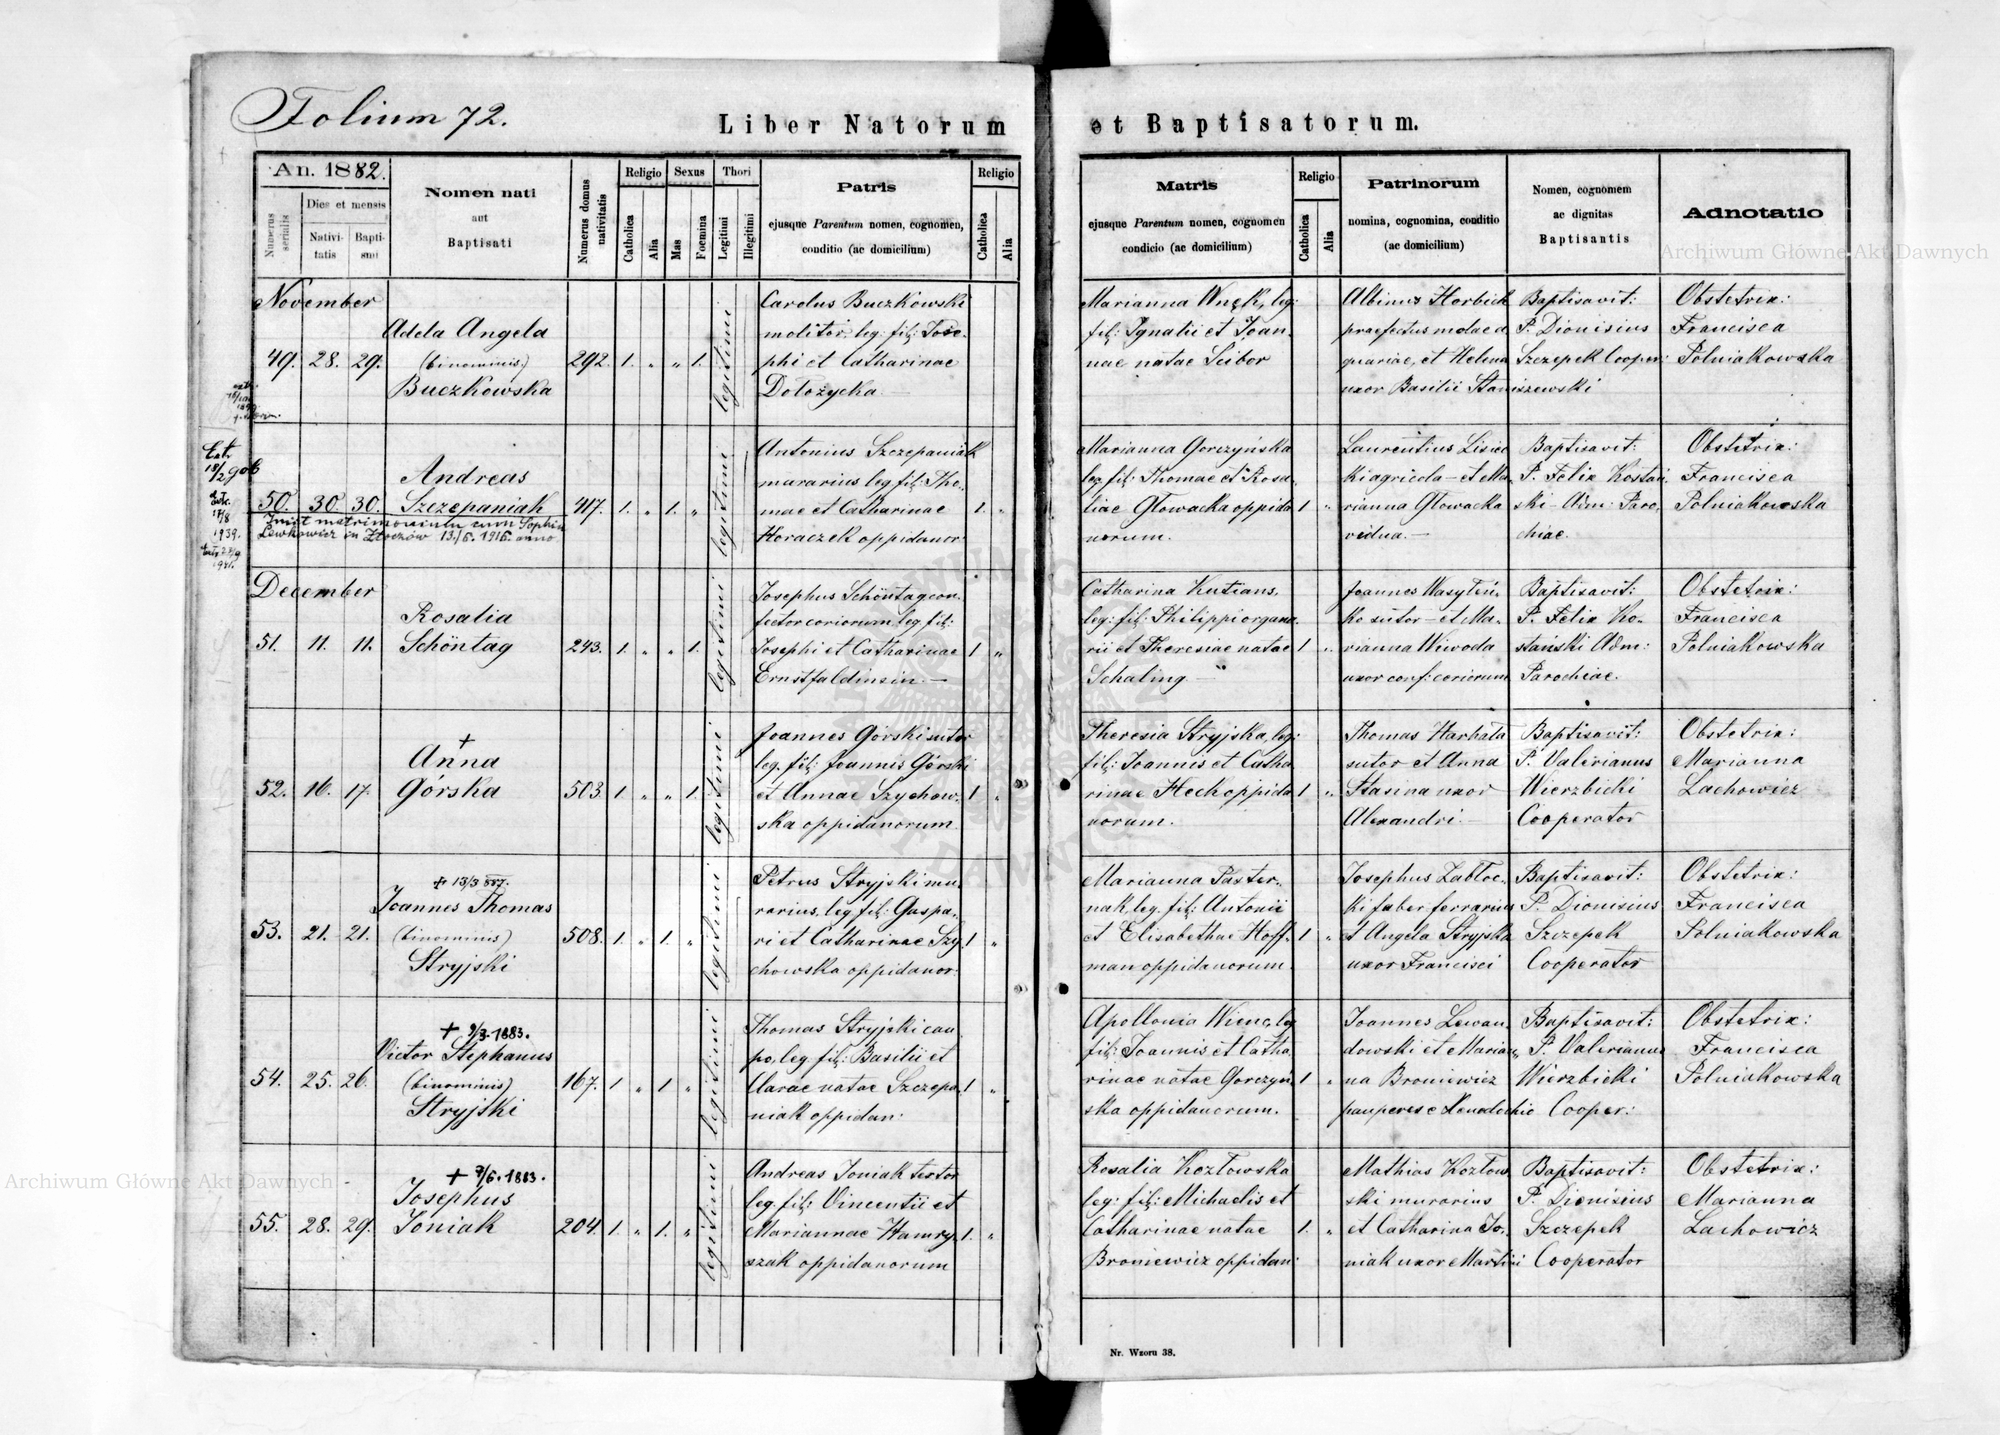 Folium 72.
Liber Natorum et Baptisatorum.
An. 1882.
Numerus serialis
Dies et mensis
Nativitatis
Baptismi
Nomen nati
aut
Baptisati
Numerus domus nativitatis
Religio
Catholica
Alia
Sexus
Mas
Foemina
Thori
Legitimi
Illegitimi
Patris
ejusque Parentum nomen, cognomen,
conditio (ac domicilium)
Religio
Catholica
Alia
Matris
ejusque Parentum nomen, cognomen
condicio (ac domicilium)
Religio
Catholica
Alia
Patrinorum
nomina, cognomina, conditio
(ac domicilium)
Nomen, cognomen
ac dignitas
Baptisantis
Adnotatio
Archiwum Główne Akt Dawnych
November
49. 28. 29.
Adela Angela
(binominis)
Buczkowska
292. 1. „ „ 1. legitimi
Carolus Buczkowski
molitor, leg: fil: Jose-
phi et Catharinae
Dołożycka
Marianna Wnęk, leg:
fil: Ignatii et Joan-
nae natae Scibor
Albinus Horbick
praefectus molae a
quariae, et Helena
uxor Basilii Staniszewski
Baptisavit:
P. Dionisius
Szczepek Cooper:
Obstetrix:
Francisca
Polniakowska
50. 30. 30.
Andreas
Szczepaniak
Iniit matrimonium cum Sophia
Lewkowicz in Złoczów 13/6. 1916. anno
417. 1. „ 1. „ legitimi
Antonius Szczepaniak
murarius leg. fil: Tho-
mae et Catharinae
Horaczek oppidanor:
1. „
Marianna Gorczyńska
leg. fil: Thomae et Rosa-
liae Głowacka oppida
norum.
1 „
Laurentius Lisiec
ki agricola – et Ma-
rianna Głowacka
vidua. –
Baptisavit:
P. Felix Kostań
ski – Adm: Paro-
chiae.
Obstetrix:
Francisca
Polniakowska
December
51. 11. 11.
Rosalia
Schöntag
243. 1. „ „ 1. legitimi
Josephus Schöntag con-
fector coriorum, leg. fil:
Josephi et Catharinae
Ernstfaldinsin. –
1 „
Catharina Kutians,
leg: fil: Philippi organa-
rii et Theresiae natae
Schaling. –
1 „
Joannes Wasyleń-
ko sutor – et Ma-
rianna Wiwoda
uxor conf: coriorum
Baptisavit:
P. Felix Ko-
stański Adm:
Parochiae.
Obstetrix:
Francisca
Polniakowska
52. 16. 17.
+
Anna
Górska
503 1. „ „ 1. legitimi
Joannes Górski sutor
leg. fil: Joannis Górski
et Annae Szychow-
ska oppidanorum
1 „
Theresia Stryjska, leg:
fil: Joannis et Catha
rinae Hech oppida
norum.
1 „
Thomas Harhata
sutor et Anna
Stasina uxor
Alexandri. –
Baptisavit:
P. Valerianus
Wierzbicki
Cooperator
Obstetrix:
Marianna
Lachowicz
53. 21. 21.
+ 13/3 887.
Joannes Thomas
(binominis)
Stryjski
508. 1. „ 1. „ legitimi
Petrus Stryjski mu-
rarius, leg. fil: Gaspa-
ri et Catharinae Szy
chowska oppidanor:
1 „
Marianna Paster-
nak, leg. fil: Antonii
et Elisabethae Hoff-
man oppidanorum.
1 „
Josephus Zabłoc-
ki faber ferrarius
et Angela Stryjska
uxor Francisci
Baptisavit:
P. Dionisius
Szczepek
Cooperator
Obstetrix:
Francisca
Polniakowska
54. 25. 26.
+ 9/3. 1883.
Victor Stephanus
(binominis)
Stryjski
167. 1 „ 1 „ legitimi
Thomas Stryjski cau
po, leg. fil: Basilii et
Clarae natae Szczepa-
niak oppidan:
1 „
Apollonia Wienc, leg
fil: Joannis et Catha
rinae natae Gorczyń
ska oppidanorum.
1 „
Joannes Lewan-
dowski et Marian-
na Broniewicz
pauperes e Xenodochio
Baptisavit:
P. Valerianus
Wierzbicki
Cooper:
Obstetrix:
Francisca
Polniakowska
55. 28. 29.
+ 7/6. 1883.
Josephus
Joniak
204 1. „ 1. „ legitimi
Andreas Joniak textor
leg. fil: Vincentii et
Mariannae Hamry-
szak oppidanorum
1. „
Rosalia Kozłowska
leg: fil: Michaelis et
Catharinae natae
Broniewicz oppidan:
1. „
Mathias Kozłow
ski murarius
et Catharina Jo-
niak uxor Martini
Baptisavit:
P. Dionisius
Szczepek
Cooperator
Obstetrix:
Marianna
Lachowicz
Archiwum Główne Akt Dawnych
Nr. Wzoru 38.